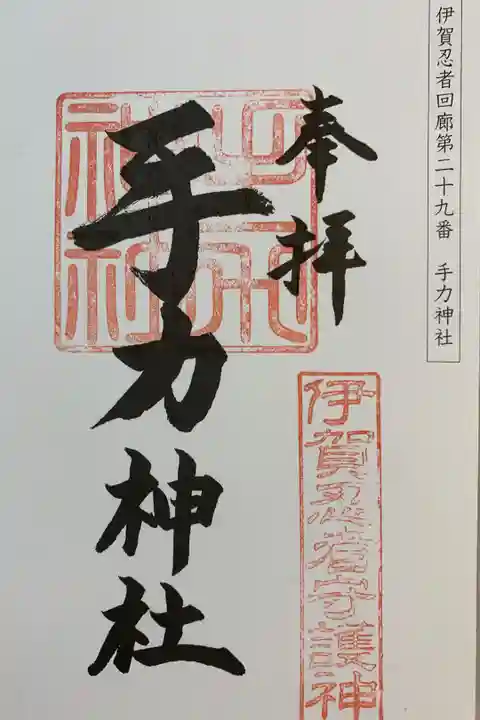 伊賀忍者回廊第二十九番 手力神社
奉拝
手力神社
手力神社
伊賀忍者守護神